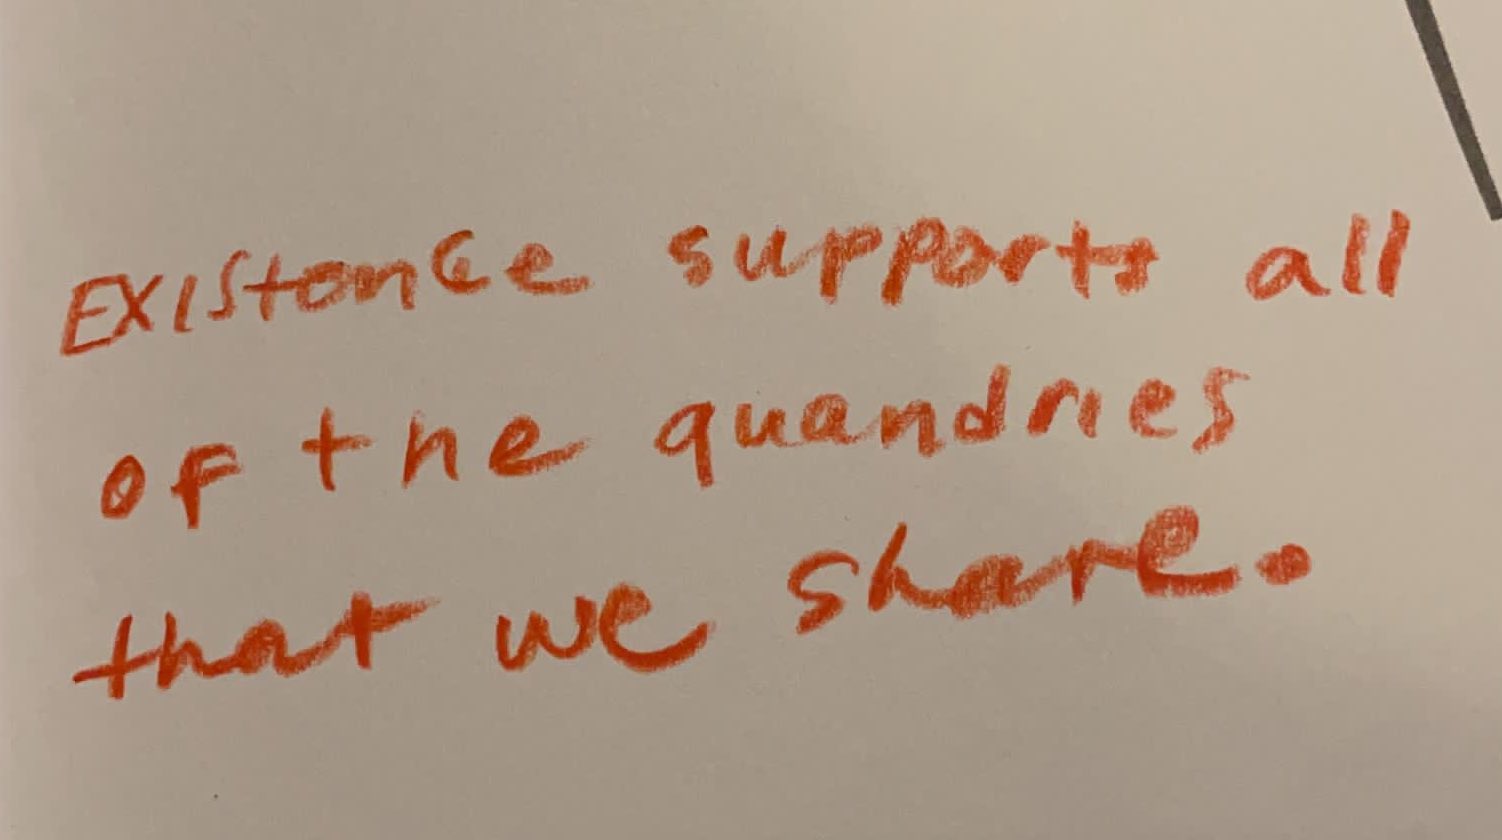 Existance supports all
of the quandries
that we share.